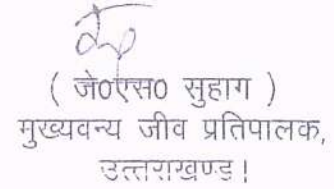 ( जे०एस० सुहाग )
मुख्यवन्य जीव प्रतिपालक,
उत्तराखण्ड!